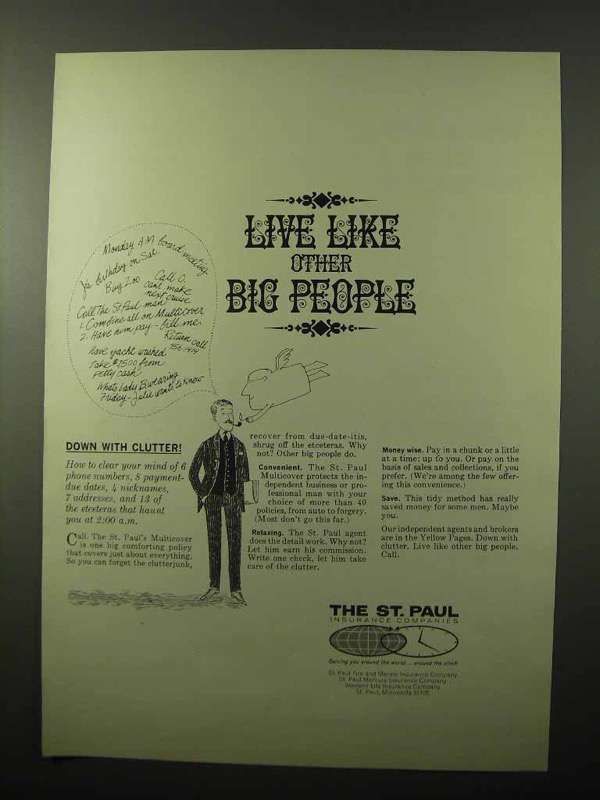 LIVE LIKE
OTHER
BIG PEOPLE
Monday A.M board meeting
Ja birthday on Sat
Buy Zoo
Call C.
can't make
next cruise
Call The St Paul man
1. Combine all on Multicover
2. Have him pay - bill me.
Return call
Have yacht washed
Take $7500 from
Petty cash
What's Lady B wearing
Friday - Julie wants to know
DOWN WITH CLUTTER!
How to clear your mind of 6
phone numbers, 8 payment-
due dates, 4 nicknames,
7 addresses, and 13 of
the etceteras that haunt
you at 2:00 a.m.
Call The St. Paul's Multicover
is one big comforting policy
that covers just about everything.
So you can forget the clutterjunk,
recover from due-date-itis,
shrug off the etceteras. Why
not? Other big people do.
Convenient. The St. Paul
Multicover protects the in-
dependent business or pro-
fessional man with your
choice of more than 40
policies, from auto to forgery.
(Most don't go this far.)
Relaxing. The St. Paul agent
does the detail work. Why not?
Let him earn his commission.
Write one check, let him take
care of the clutter.
Money wise. Pay in a chunk or a little
at a time: up to you. Or pay on the
basis of sales and collections, if you
prefer. (We're among the few offer-
ing this convenience.)
Save. This tidy method has really
saved money for some men. Maybe
you.
Our independent agents and brokers
are in the Yellow Pages. Down with
clutter. Live like other big people.
Call.
THE ST. PAUL
INSURANCE COMPANIES
Serving you around the world... around the clock
St. Paul Fire and Marine Insurance Company
St. Paul Mercury Insurance Company
Western Life Insurance Company
St. Paul, Minnesota